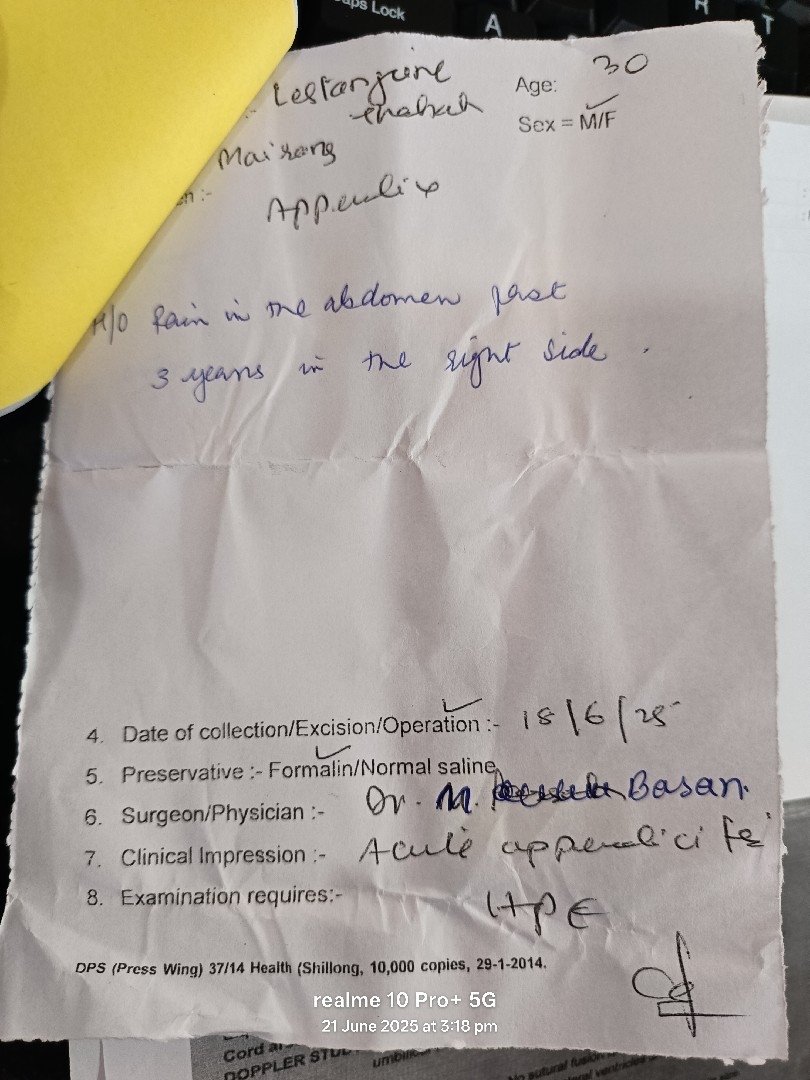 Caps Lock
A
R
T
Lestarjune
Age: 30
Sex = M/F
Mairang
en :-
Appendix
H/O Pain in the abdomen past
3 years in the right side.
4. Date of collection/Excision/Operation :- 18/6/25
5. Preservative :- Formalin/Normal saline
6. Surgeon/Physician :- Dr. M. Basan.
7. Clinical Impression :- Acute appendicitis
8. Examination requires:- HPE
DPS (Press Wing) 37/14 Health (Shillong, 10,000 copies, 29-1-2014.
realme 10 Pro+ 5G
21 June 2025 at 3:18 pm
Cord
DOPPLER
No sutural fusion
ventricles